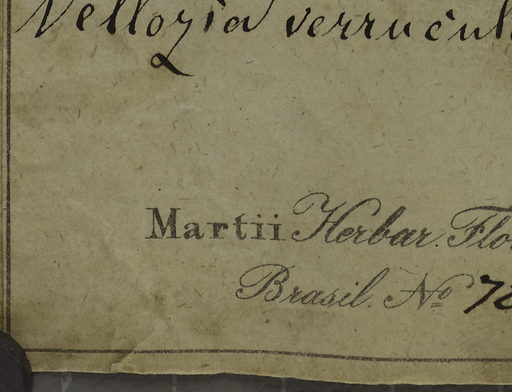 Vellozia verrucul
Martii Herbar. Flo
Brasil. No 7